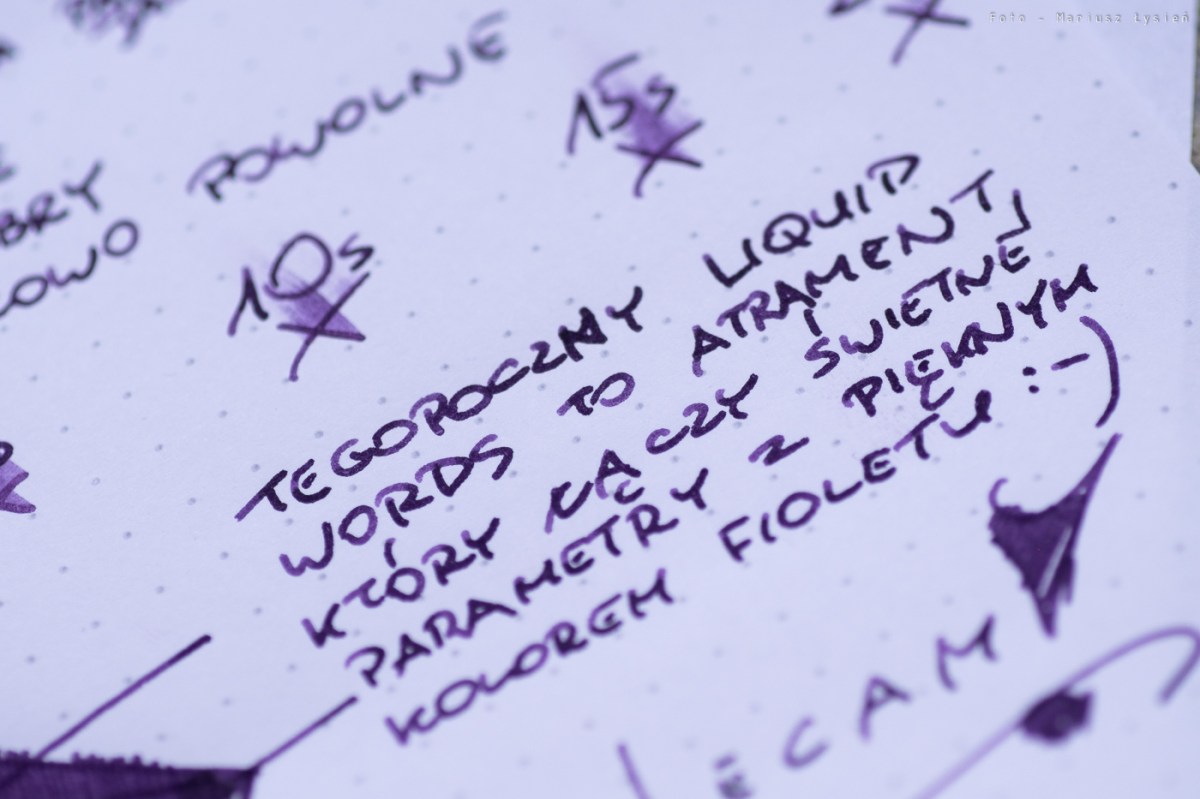 Foto - Mariusz Łysień
POWOLNE
15s
BRY
OWO
10s
TEGOROCZNY LIQUID
WORDS TO ATRAMENT,
KTÓRY ŁĄCZY ŚWIETNE
PARAMETRY Z PIĘKNYM
KOLOREM FIOLETU :-)
ECAM